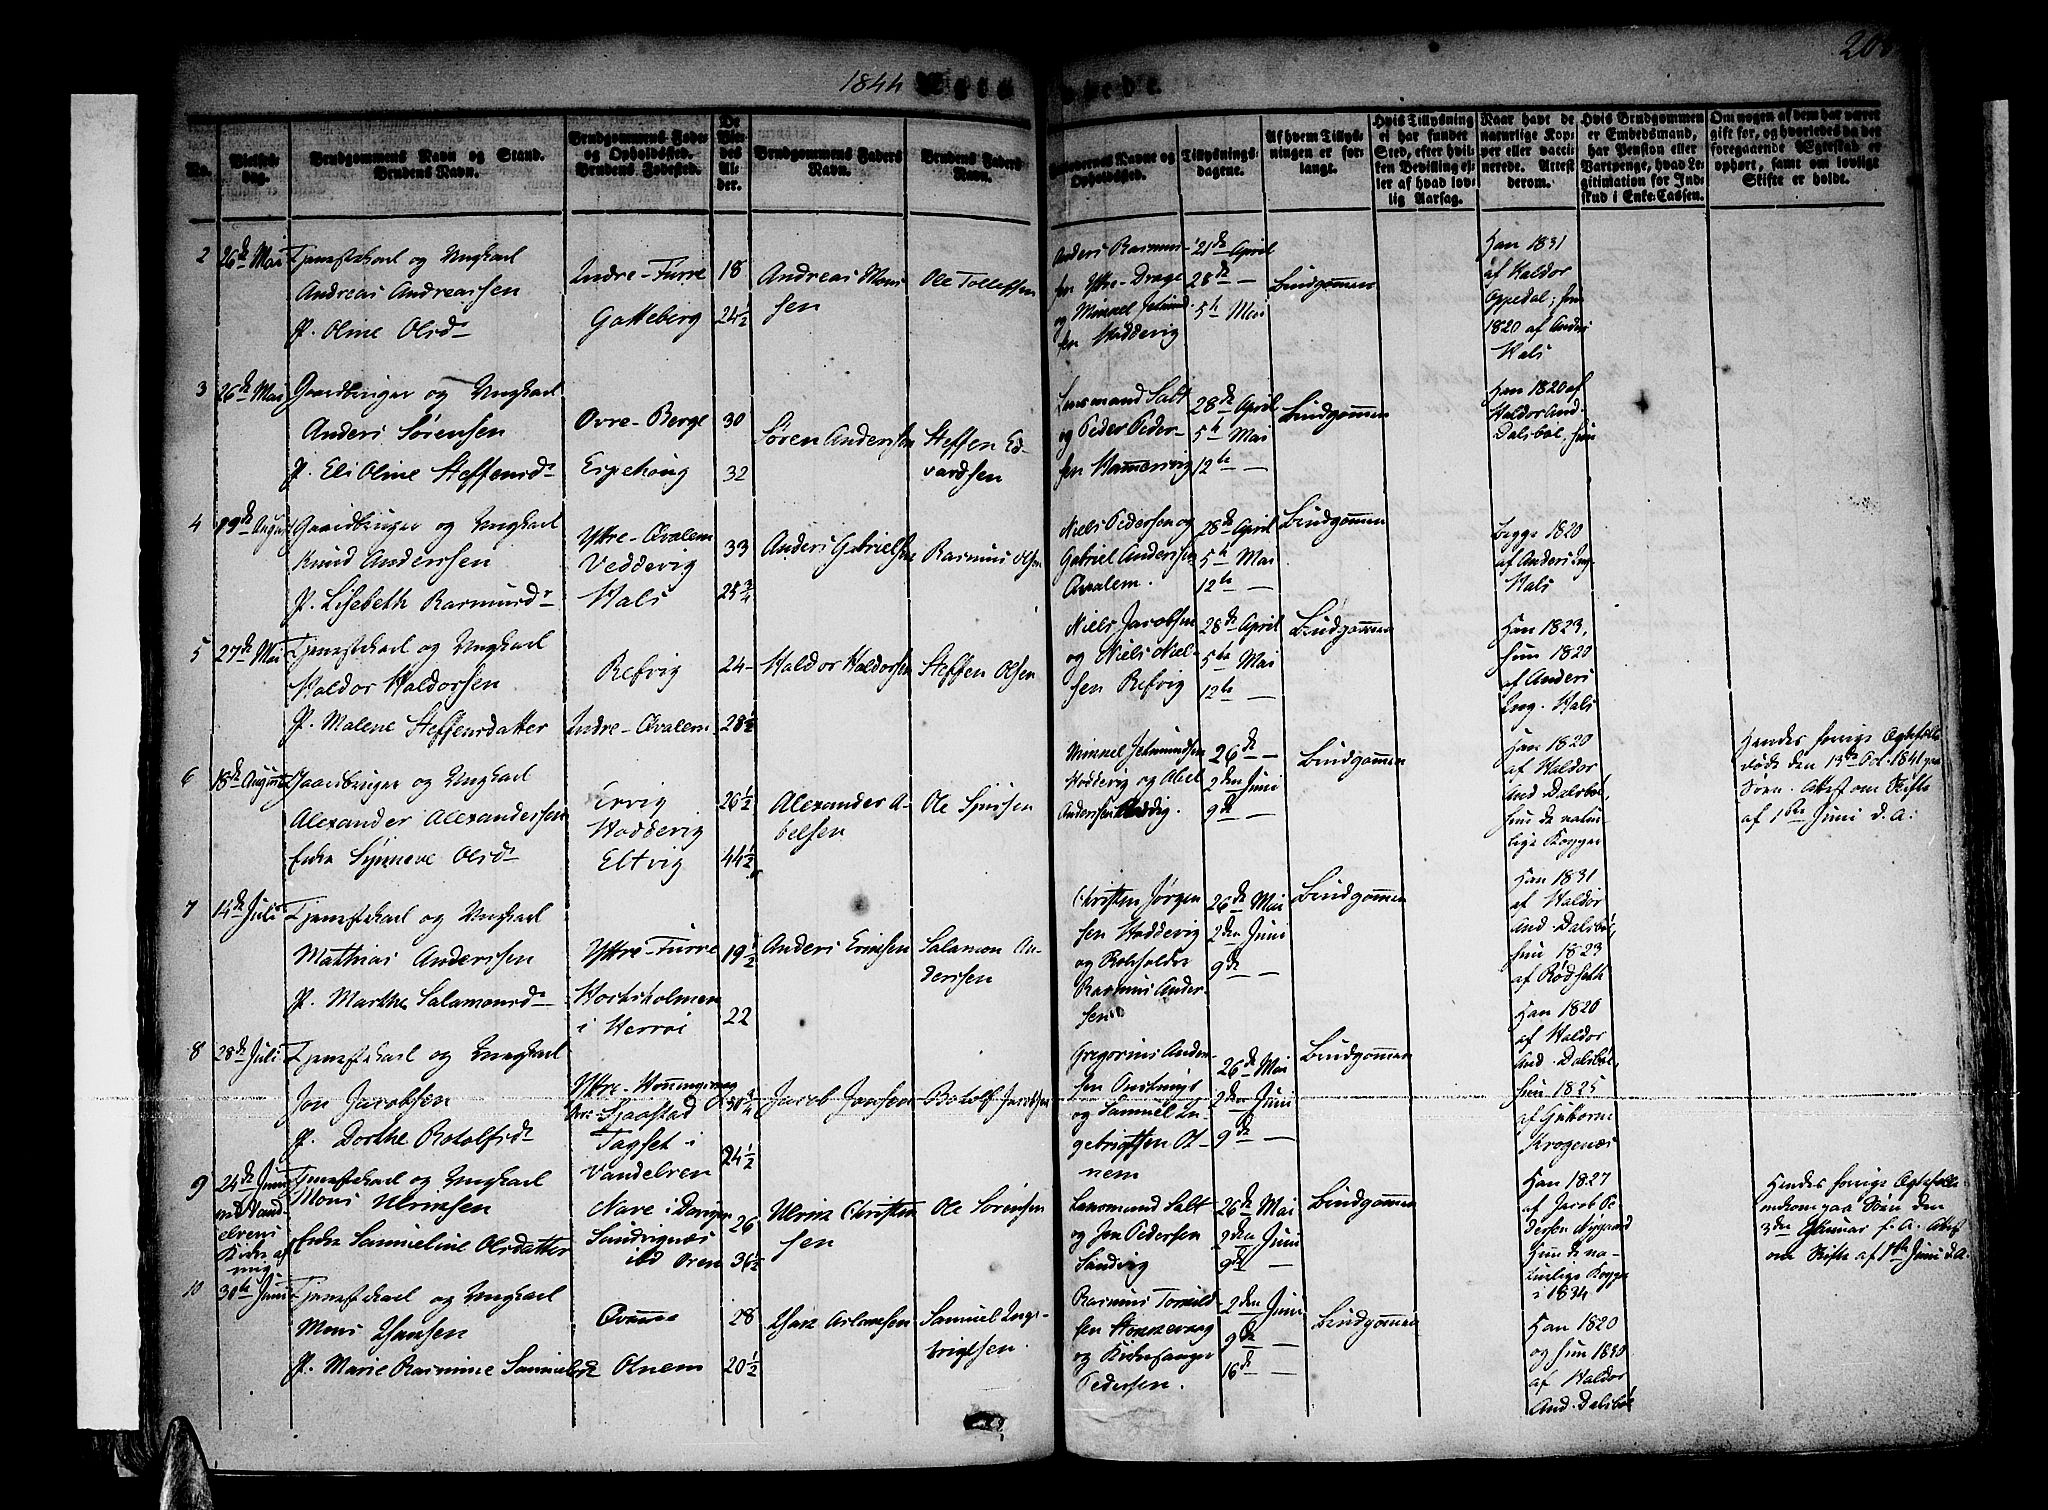 1844
Viede
No.
Vielses-
dag.
Brudgommens Navn og Stand.
Brudens Navn.
Brudgommens Føde-
og Opholdssted.
Brudens Fødested.
De
Vie-
des
Al-
der.
Brudgommens Faders
Navn.
Brudens Faders
Navn.
Forlovernes Navne og
Opholdssted.
Tillysnings-
dagene.
Af hvem Tillys-
ningen er for-
langt.
Hvis Tillysning
ei har fundet
Sted, efter hvil-
ken Bevilling el-
ler af hvad lov-
lig Aarsag.
Naar havt de
naturlige Kop-
per eller vacci-
nerede. Attest
derom.
Hvis Brudgommen
er Embedsmand,
har Pension eller
Vartpenge, hvad Le-
gitimation for Ind-
skud i Enke-Cassen.
Om nogen af dem har været
gift før, og hvorledes da det
foregaaende Ægteskab er
ophørt, samt om lovligt
Skifte er holdt.
2 26de Mai Tjenestekarl og Ungkarl
Andreas Andreassen
P. Oline Olsdr
Indre-Furre
Gotteberg
18
24½
Andreas Mons
sen
Ole Tollefsen
Anders Rasmus-
sen Ytre-Drage
og Mimmel Jetmund-
sen Hoddevig
21de April
28de —
5te Mai
Brudgommen
Han 1831
af Haldor
Oppedal; hun
1820 af Anders
Hals
3 26de Mai Gaardbruger og Ungkarl
Anders Sørensen
P. Eli Oline Steffensdr
Ovre-Berge
Espehoug
30
32
Søren Andersen
Steffen Ed-
vardsen
Lensmand Salt
og Peder Peder-
sen Hammersvig
28de April
5te Mai
12te —
Brudgommen
Han 1820 af
Haldor And.
Dalsbøe, hun
4 19de August Gaardbruger og Ungkarl
Knud Anderssen
P. Lisebeth Rasmusdr
Ytre-Qvalem
Veddevig
Hals
33
25¾
Anders Gabrielsen
Rasmus Olsen
Niels Pedersen og
Gabriel Anderssen
Qvalem.
28de April
5te Mai
12te —
Brudgommen
Begge 1820
af Anders Ing.
Hals
5 27de Mai Tjenestekarl og Ungkarl
Haldor Haldorsen
P. Malene Steffensdatter
Refvig
Indre-Qvalem
24
28½
Haldor Haldorsen
Steffen Olsen
Niels Jacobsen
og Niels Niel-
sen Refvig
28de April
5te Mai
12te —
Brudgommen
Han 1823,
hun 1820
af Anders
Ing. Hals
6 18de August Gaardbruger og Ungkarl
Alexander Alexandersen
Enke Synneve Olsdr
Ervig
Hoddevig
Eltvig
26½
44½
Alexander A-
belsen
Ole Sjursen
Mimmel Jetmundsen
Hoddevig og Abel
Anderssen
26de —
2den Juni
9de —
Brudgommen
Han 1820
af Haldor
And Dalsbøe,
hun de natur-
lige Kopper
Hendes forrige Ægtefælle
døde den 13de Oct. 1841 paa
Søen. Attest om Skifte
af 1ste Juni d. A.
7 14de Juli Tjenestekarl og Ungkarl
Mathias Anderssen
P. Marthe Salamonsdr
Ytre-Furre
Hortsholmen
i Herroi
19½
22
Anders Ericksen
Salamon An-
derssen
Christen Jørgen
sen Hoddevig
og
Rasmus Ander-
sen
26de Mai
2den Juni
9de —
Brudgommen
Han 1831
af Haldor
And Dalsbøe,
hun 1823
af Rødseth
8 28de Juli Tjenestekarl og Ungkarl
Jon Jacobsen
P. Dorthe Botolfsdr
Ytre-Honningsvaag
Sjaastad
Tagset i
Vandelven
30¾
24½
Jacob Jonsen
Botolf Jacobsen
Gregorius Ander-
sen
og Samuel In-
gebrigtsen Ot-
nem
26de Mai
2den Juni
9de —
Brudgommen
Han 1820
af Haldor
And. Dalsbøe,
hun 1825
af Guttorm
Krogenæs
9 24de Juni
Vand
elvens
Kirke af
mig
Tjenestekarl og Ungkarl
Mons Ulricksen
Enke Samueline Olsdatter
Nave i Davigen
Sandvignæs
26
36½
Ulrick Christen
sen
Ole Sørensen
Lensmand Salt
og Jon Pedersen
Sandvig
26de Mai
2den Juni
9de —
Brudgommen
Han 1827
af Jacob Pe
dersen Nygaard
Hun de na-
turlige Kopper
i 1834
Hendes forrige Ægtefælle
omkom paa Søen den
3die Februar f. A. Attest
om Skifte af 1ste Juni d. A.
10 30te Juni Tjenestekarl og Ungkarl
Mons Hansen
P. Marie Rasmine Samuelsdr
Otnem
28
20½
Hans Aslaksen
Samuel Inge-
brigtsen.
Rasmus Tomild-
sen
og Kirkesanger
Pedersen.
2den Juni
9de —
16de —
Brudgommen
Han 1820
og hun 1830
af Haldor
And. Dalsbøe